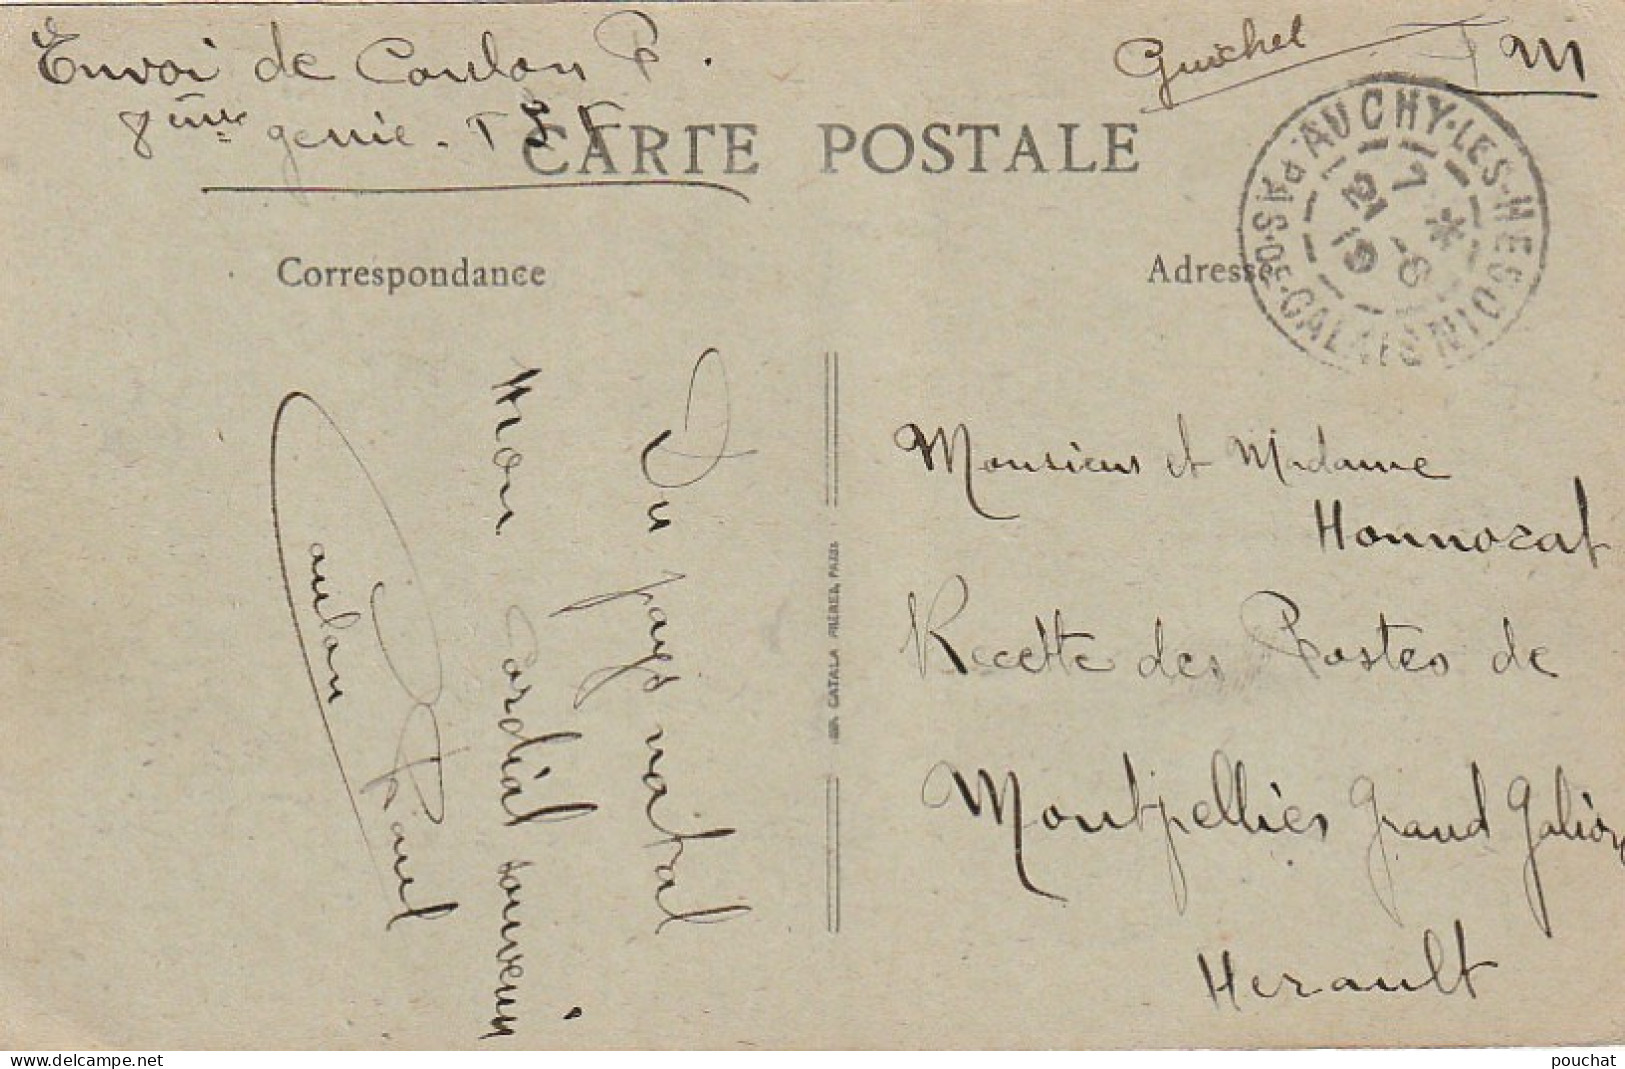 Envoi de Coulon P.
8ème genie. T S F
Guichet
F M
CARTE POSTALE
Correspondance
Adresse
AUCHY-LES-HESDIN
PAS-DE-CALAIS
7 * 
-8
19
Du pays natal
Mon cordial souvenir.
Coulon Paul
IMP. CATALA FRÈRES, PARIS
Monsieur et Madame
Honnorat
Recette des Postes de
Montpellier grand galion
Herault
delcampe.net
pouchat